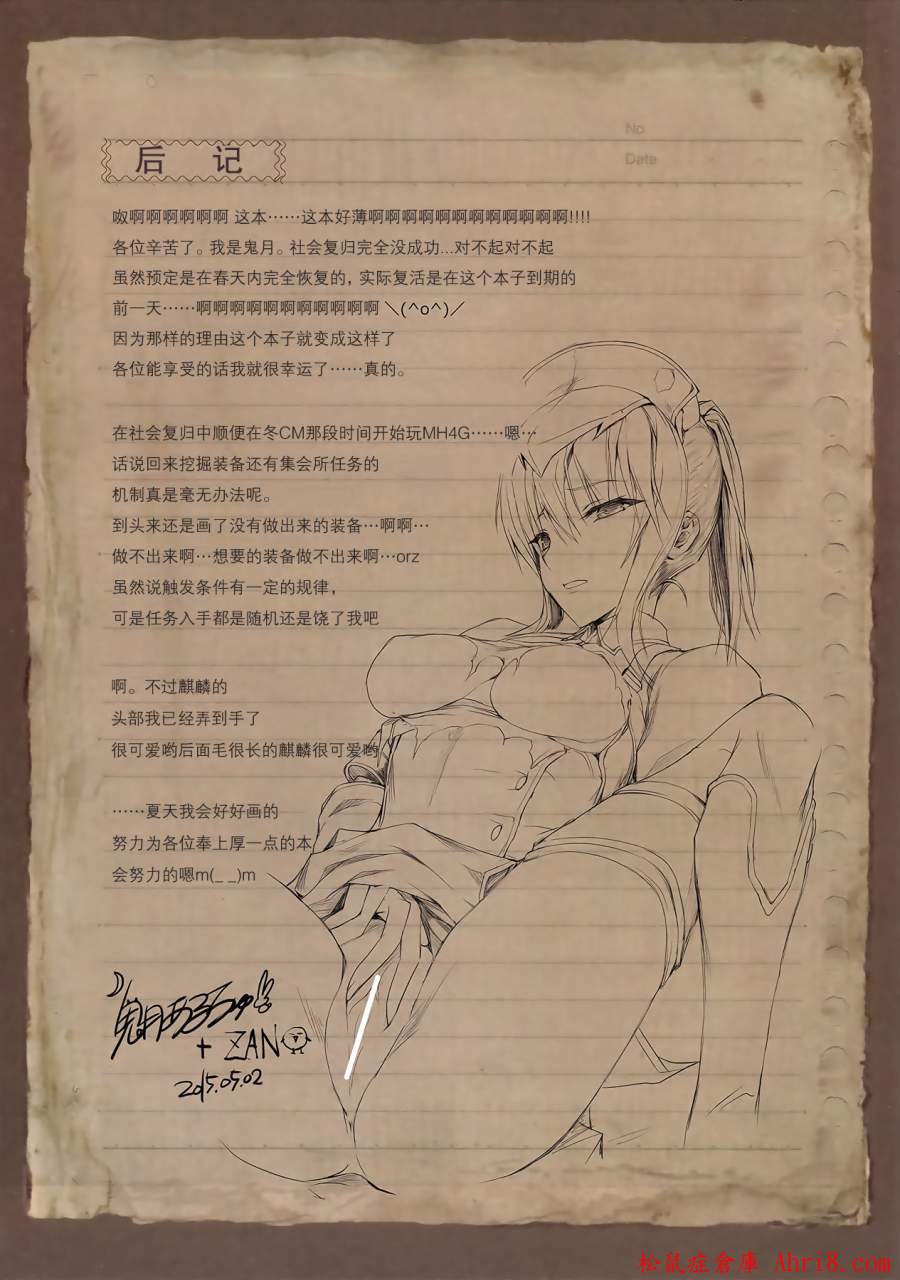 No
Date
后 记
呶啊啊啊啊啊啊 这本……这本好薄啊啊啊啊啊啊啊啊啊啊啊啊!!!!
各位辛苦了。我是鬼月。社会复归完全没成功...对不起对不起
虽然预定是在春天内完全恢复的, 实际复活是在这个本子到期的
前一天……啊啊啊啊啊啊啊啊啊啊啊 ＼(^o^)／
因为那样的理由这个本子就变成这样了
各位能享受的话我就很幸运了……真的。
在社会复归中顺便在冬CM那段时间开始玩MH4G……嗯…
话说回来挖掘装备还有集会所任务的
机制真是毫无办法呢。
到头来还是画了没有做出来的装备…啊啊…
做不出来啊…想要的装备做不出来啊…orz
虽然说触发条件有一定的规律，
可是任务入手都是随机还是饶了我吧
啊。不过麒麟的
头部我已经弄到手了
很可爱哟后面毛很长的麒麟很可爱哟
……夏天我会好好画的
努力为各位奉上厚一点的本
会努力的嗯m(_ _)m
+ ZAN
2015.05.02
松鼠症倉庫 Ahri8.com